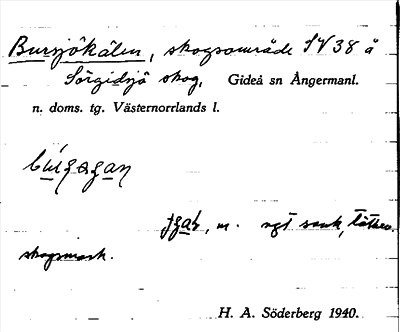 Bursjökälen, skogsområde SV 38 å
Sörgidsjö skog, Gideå sn Ångermanl.
n. doms. tg. Västernorrlands l.
, m. ngt sank, tätare
skogsmark.
H. A. Söderberg 1940.